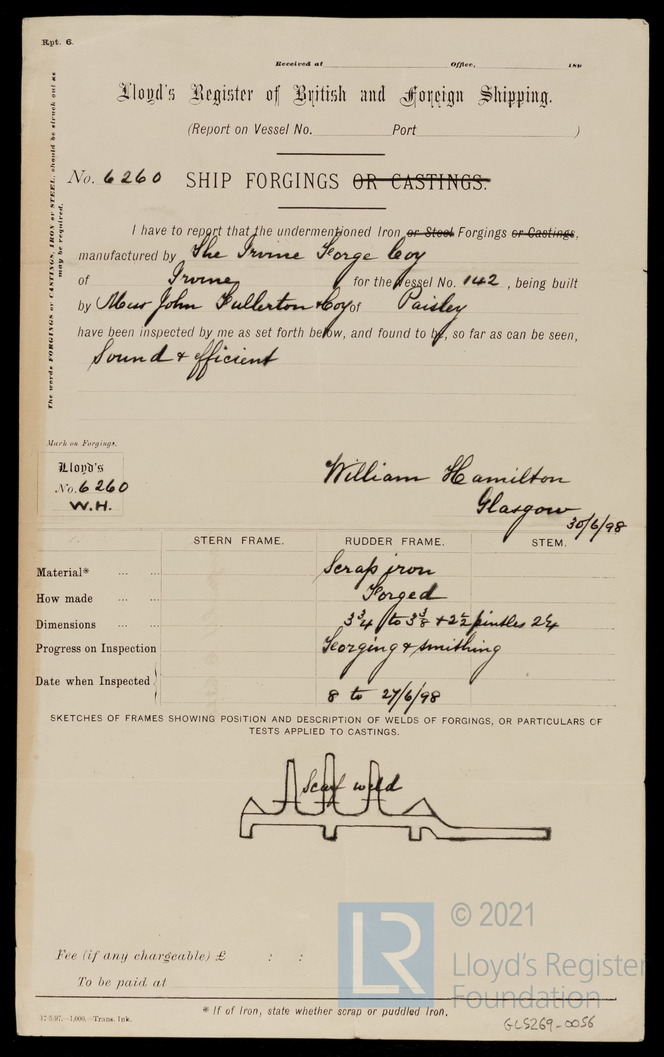 Rpt. 6.
Received at Office, 189
Lloyd's Register of British and Foreign Shipping.
(Report on Vessel No. Port )
No. 6260 SHIP FORGINGS OR CASTINGS.
The words FORGINGS or CASTINGS, IRON or STEEL, should be struck out as may be required.
I have to report that the undermentioned Iron or Steel Forgings or Castings,
manufactured by The Irvine Forge Coy
of Irvine for the Vessel No. 142, being built
by Mess John Fullerton & Coy of Paisley
have been inspected by me as set forth below, and found to be, so far as can be seen,
Sound & efficient
Mark on Forgings.
Lloyd's
No. 6260
W.H.
William Hamilton
Glasgow
30/6/98
STERN FRAME. RUDDER FRAME. STEM.
Material* ... ... Scrap iron
How made ... ... Forged
Dimensions ... ... 3 3/4 to 3 3/8 & 2 1/2 pintles 2 1/4
Progress on Inspection Forging & smithing
Date when Inspected 8 to 27/6/98
SKETCHES OF FRAMES SHOWING POSITION AND DESCRIPTION OF WELDS OF FORGINGS, OR PARTICULARS OF
TESTS APPLIED TO CASTINGS.
Scarf weld
Fee (if any chargeable) £ : :
To be paid at
* If of Iron, state whether scrap or puddled Iron.
17/5/97.—1,000.—Trans. Ink.
LR
© 2021
Lloyd's Register
Foundation
GLS269-0056